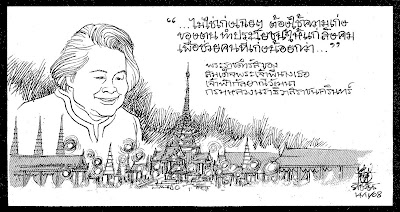 “...ไม่ใช่เก่งเฉยๆ ต้องใช้ความเก่ง
ของตน ทำประโยชน์ให้แก่สังคม
เพื่อช่วยคนที่เก่งน้อยกว่า...”
พระราชดำรัสของ
สมเด็จพระเจ้าพี่นางเธอ
เจ้าฟ้ากัลยาณิวัฒนา
กรมหลวงนราธิวาสราชนครินทร์